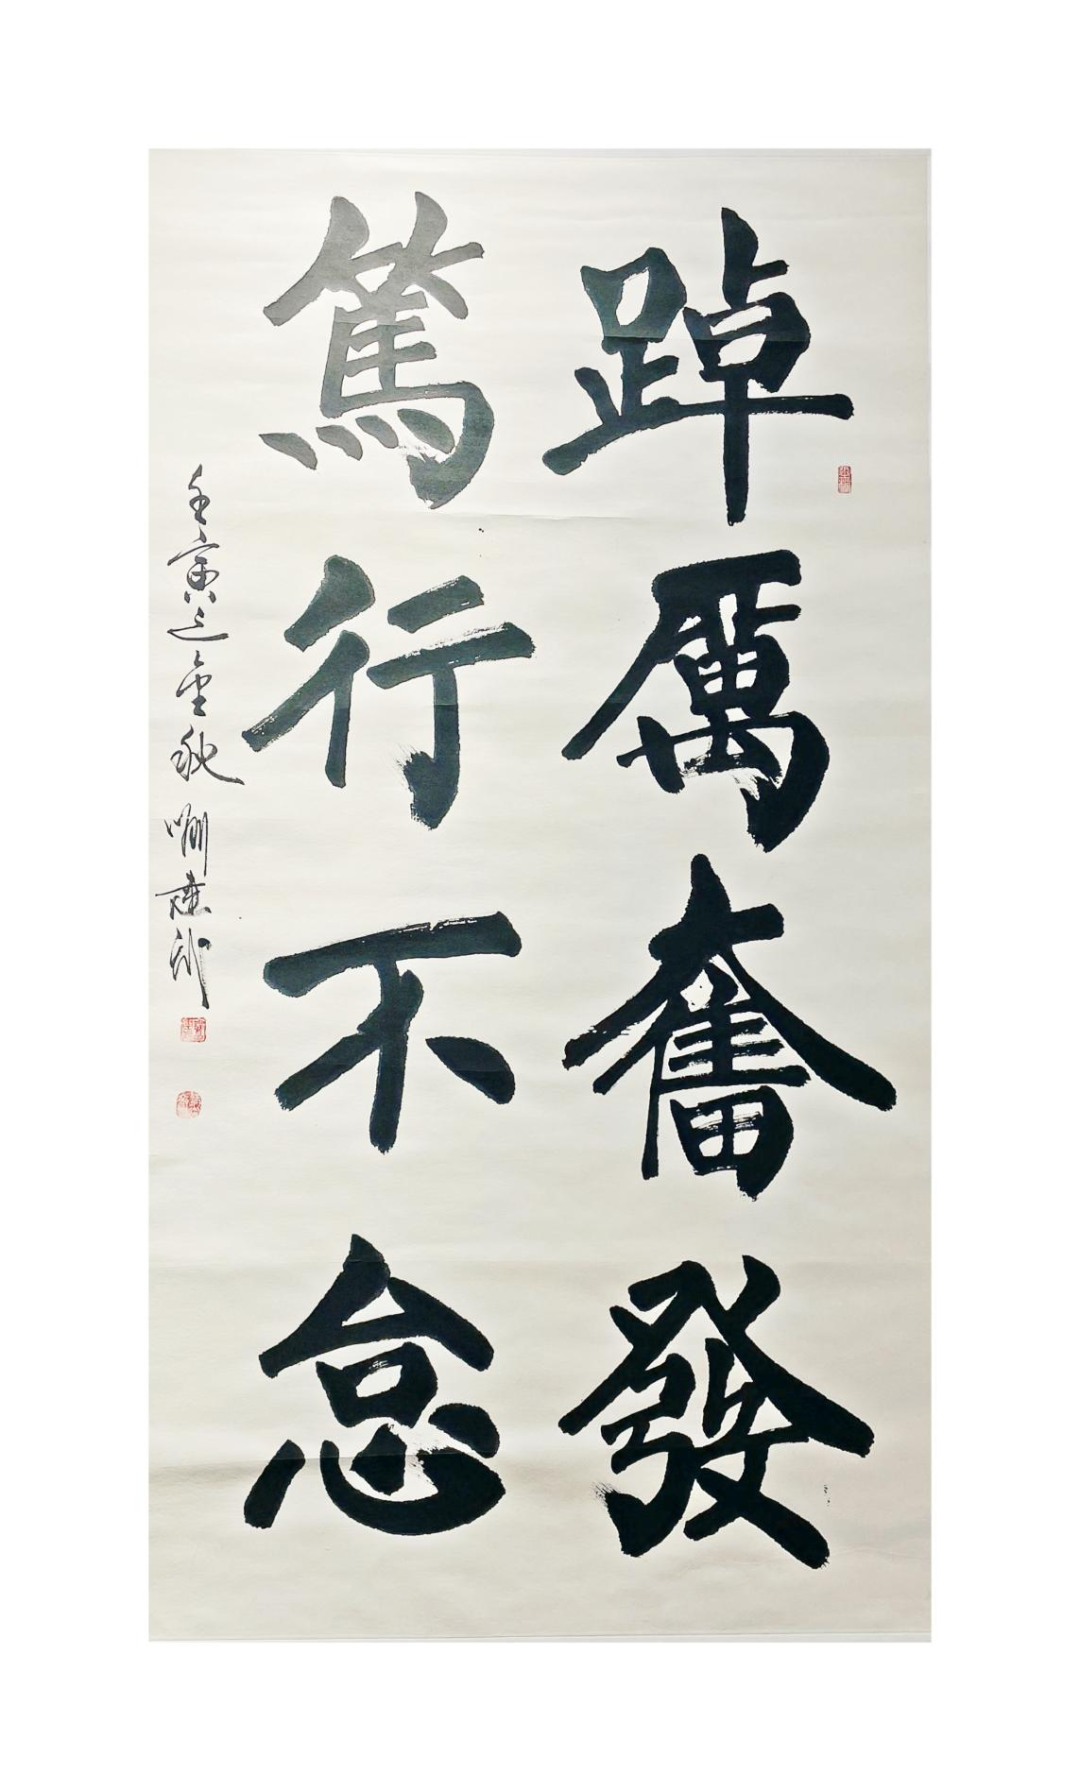 踔厲奮發
篤行不怠
壬寅之金秋